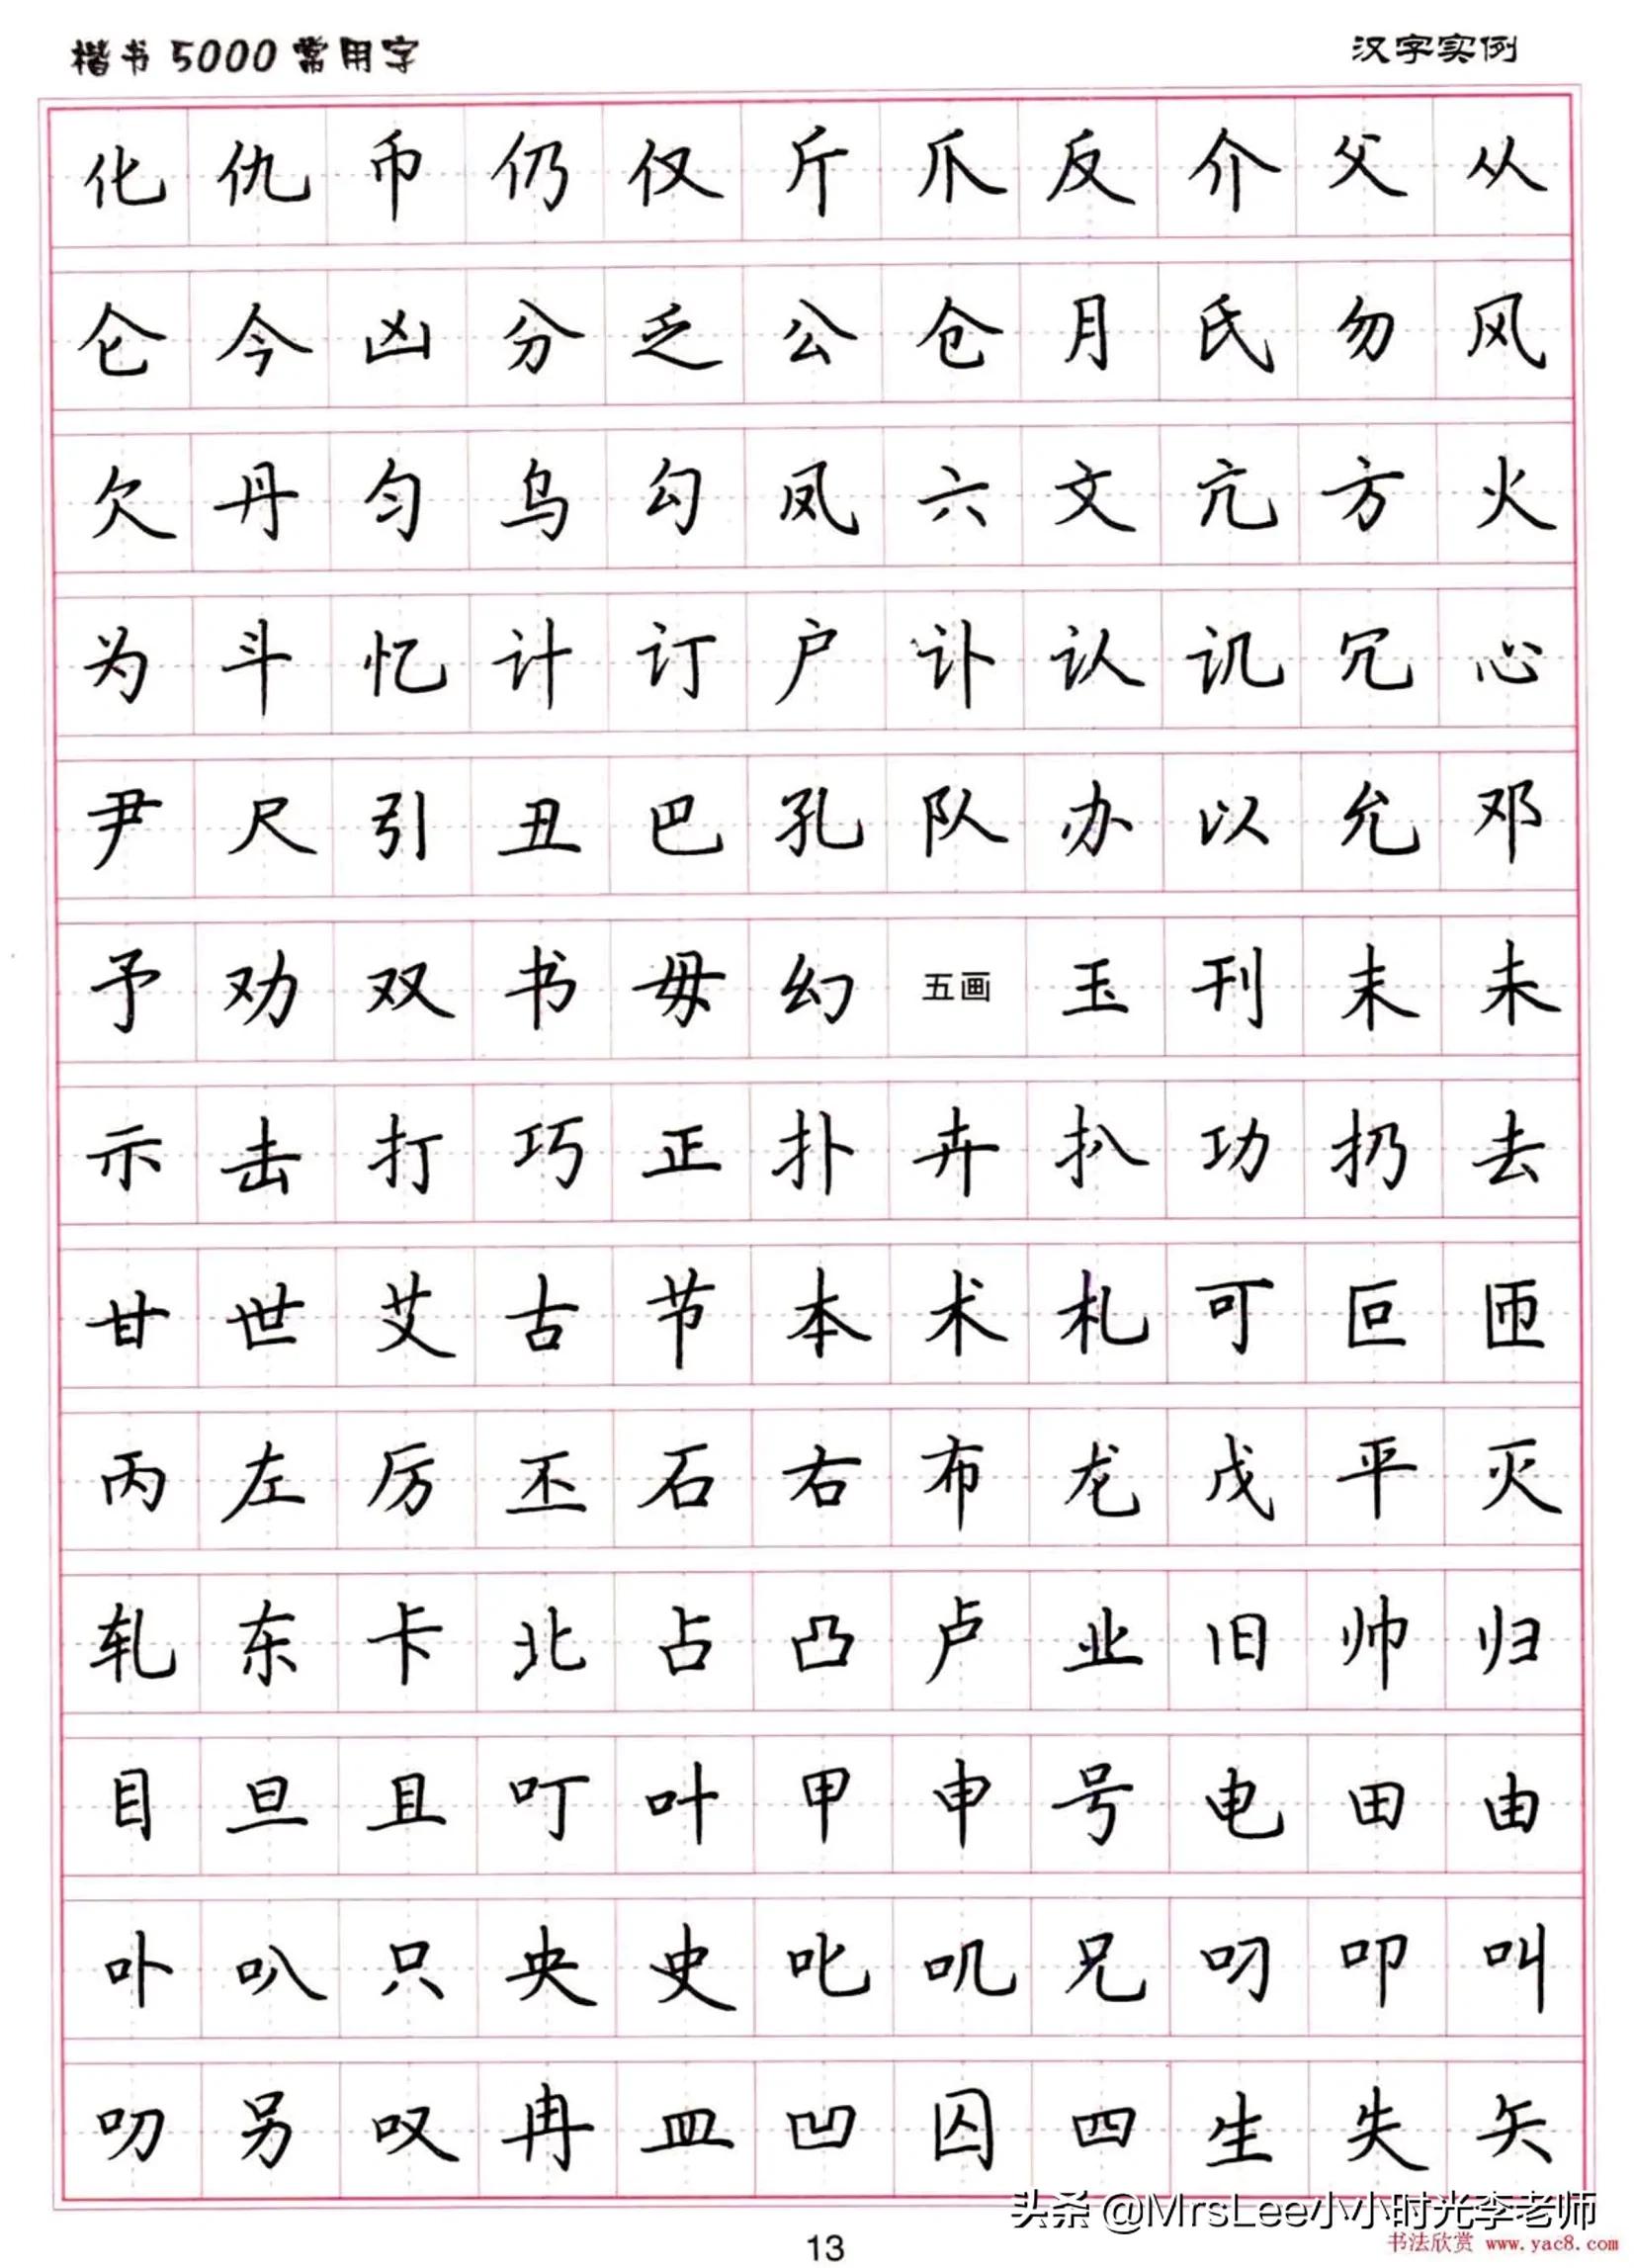 楷书5000常用字 汉字实例
化 仇 币 仍 仅 斤 爪 反 介 父 从
仑 今 凶 分 乏 公 仓 月 氏 勿 风
欠 丹 匀 乌 勾 凤 六 文 亢 方 火
为 斗 忆 计 订 户 讣 认 讥 冗 心
尹 尺 引 丑 巴 孔 队 办 以 允 邓
予 劝 双 书 毋 幻 五画 玉 刊 末 未
示 击 打 巧 正 扑 卉 扒 功 扔 去
甘 世 艾 古 节 本 术 札 可 叵 匝
丙 左 厉 丕 石 右 布 龙 戊 平 灭
轧 东 卡 北 占 凸 卢 业 旧 帅 归
目 旦 且 叮 叶 甲 申 号 电 田 由
卟 叭 只 央 史 叱 叽 兄 叼 叩 叫
叨 另 叹 冉 皿 凹 囚 四 生 失 矢
头条 @MrsLee小小时光李老师
13
书法欣赏 www.yac8.com